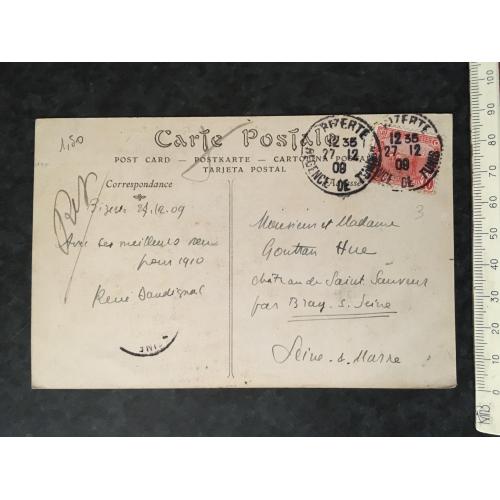 1,50
Carte Postale
POST CARD — POSTKARTE — CARTOLINA POSTALE
TARJETA POSTAL
Correspondance
Adresse
BIZERTE
12 35
27 12
09
REGENCE DE TUNIS
BIZERTE
12 35
27 12
09
REGENCE DE TUNIS
Rep
Bizerte 27.12.09
Avec ses meilleurs vœux
pour 1910
René
3
Monsieur et Madame
Gontran Hue
château de Saint Sauveur
par Bray s. Seine
Seine s. Marne
10 20 30 40 50 60 70 80 90 100